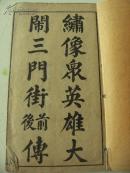 繡像眾英雄大
鬧三門街前後傳